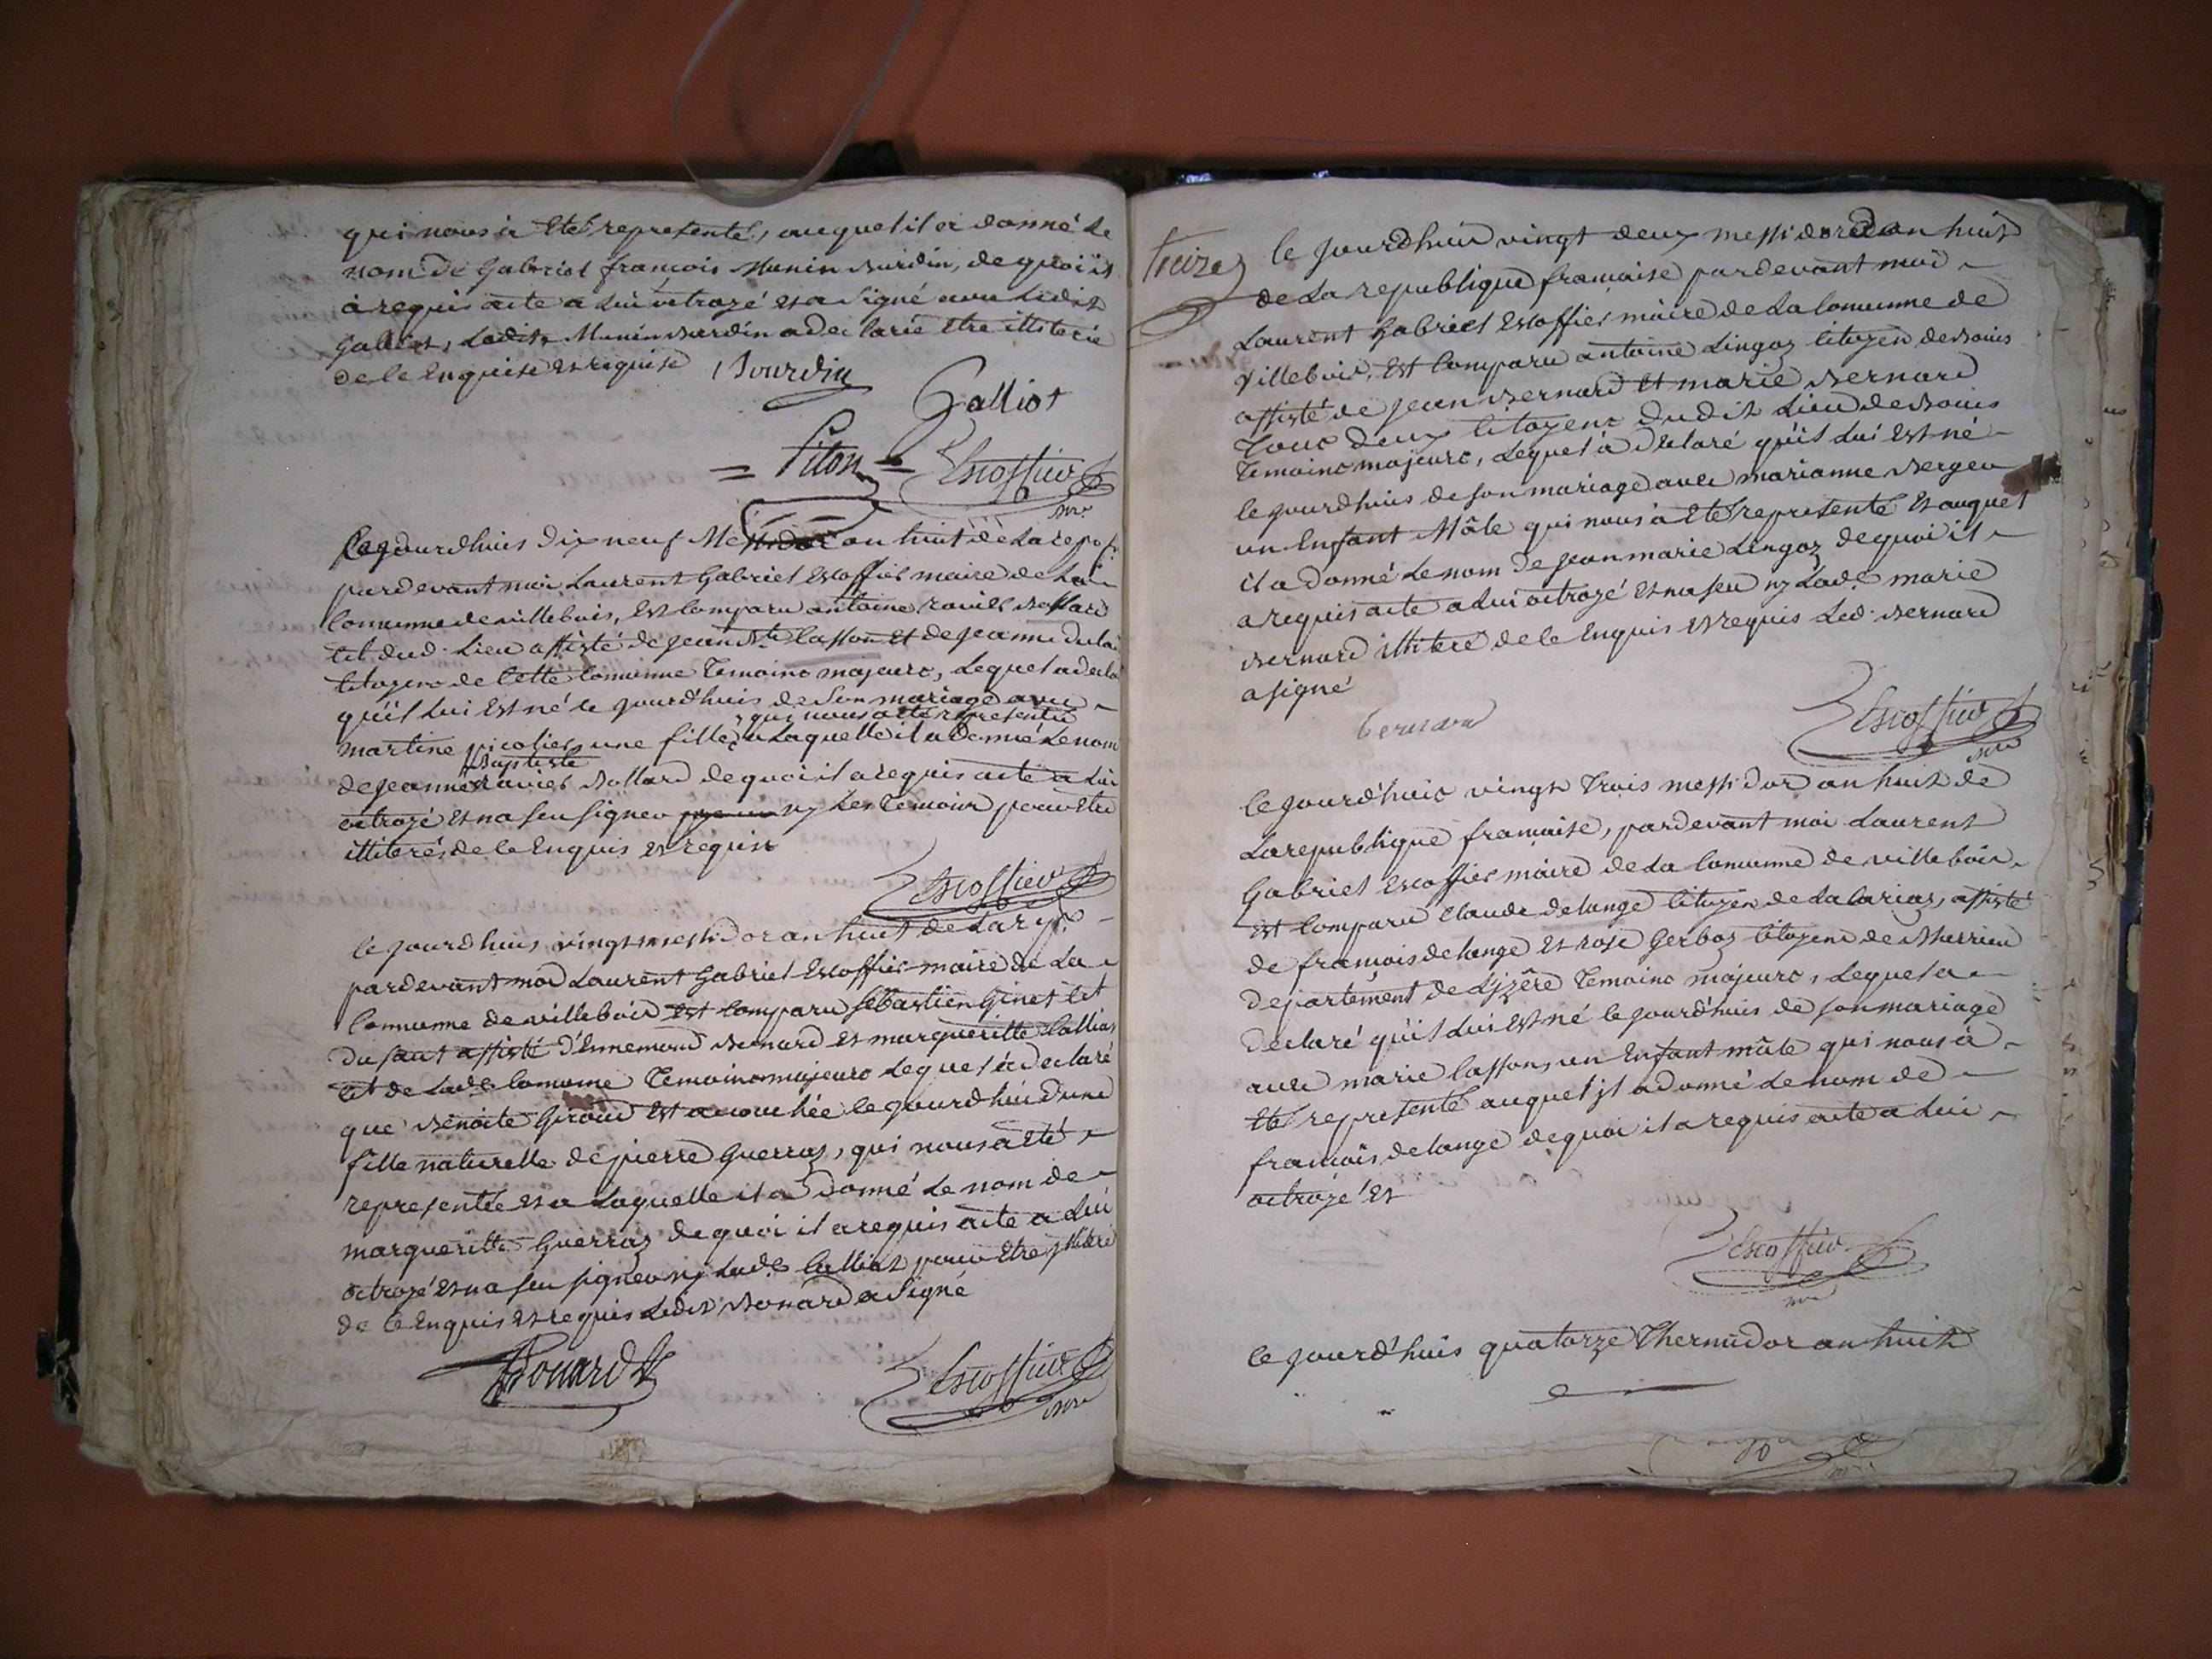 qui nous à Eté representé, auquel il a donné le
nom de Gabriel francois Munin Burdin, de quoi il
à requis acte a lui octroyé et a Signé avec Ledit
Galliot, Ladite Munin Burdin a declarée Etre illiterée
de le Enquise et requise Bourdin
Galliot
= Piton = Escoffier
mre
Cejourdhuis dix neuf Messidor an huit de La rep.
pardevant moi Laurent Gabriel Escoffier maire de La
Comunne de villebois, Est Comparu antoine ravier Bollard
Cit. dud. Lieu assisté de jean Bte Casson Et de jeanne
Citoyens de Cette Comunne Temoins majeurs, Lequel a
qu'il Lui Est né ce jourd'huis de Son mariage avec
qui nous a eté representée
martine une fille, a Laquelle il a donné Le nom
Baptiste
de jeanne ravier Bollard de quoi il a requis acte a Lui
octroyé Et na seu signer ny Les Temoins pour Etre
illiterés, de le Enquis et requis
Escoffier
le jourdhuis vingt messidor an huit de La rep.
pardevant moi Laurent Gabriel Escoffier maire de La
Comunne de villebois Est Comparu Sebastien Ginet Cit
du saut assisté d'Ennemond Bonard Et margueritte Calliat
Cit de Lade Comunne Temoins majeurs Lequel à declaré
que Benoite Giroud Est acouchée le jourdhui d'une
fille naturelle de pierre Guerraz, qui nous a Eté
representée et a Laquelle il a donné Le nom de
margueritte Guerraz de quoi il a requis acte a Lui
octroyé et na seu signer ny Lade Calliat pour Etre illiteré
de le Enquis et requis Ledit Bonard a Signé
Bonard
Escoffier
mre
Treize
le jourdhui vingt deux messidor an huit
de La republique francaise pardevant moi
Laurent Gabriel Escoffier maire de La Comunne de
villebois, Est Comparu antoine Lingoz Citoyen de Bouis
assisté de jean Bernard Et marie Bernard
Tous deux Citoyens dudit Lieu de Bouis
Temoins majeurs, Lequel à Declaré qu'il Lui Est né
le jourdhuis de son mariage avec marianne Berger
un Enfant Mâle qui nous a Eté representé Et auquel
il a donné Le nom de jean marie Lingoz de quoi il
a requis acte a Lui octroyé Et na seu ny Lade marie
Bernard illiteré de le Enquis et requis Led. Bernard
a signé
bernard
Escoffier
mre
le jourd'huis vingt Trois messidor an huit de
La republique francaise, pardevant moi Laurent
Gabriel Escoffier maire de La Comunne de villebois
Est Comparu Claude delange Citoyen de La Cariaz, assisté
de francois delange Et rose Gerboz Citoyens de
departement de Lizêre Temoins majeurs, Lequel a
declaré qu'il Lui Est né le jourd'huis de son mariage
avec marie Casson, un Enfant mâle qui nous à
Eté representé auquel il a donné Le nom de
francois delange de quoi il a requis acte a Lui
octroyé Et
Escoffier
mre
le jourd'huis quatorze Thermidor an huit